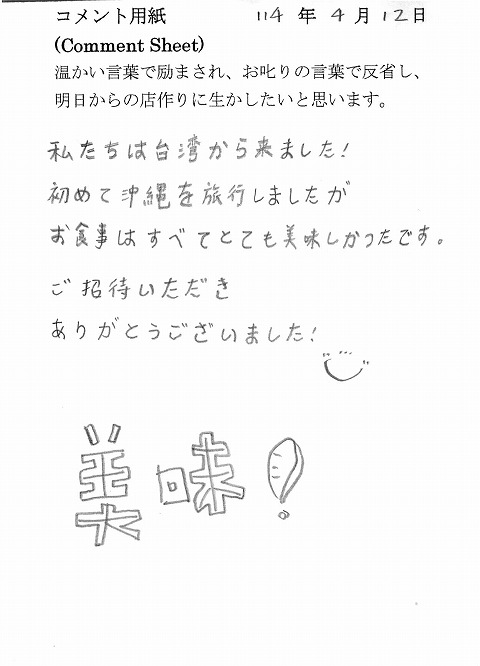 コメント用紙 114 年 4 月 12 日
(Comment Sheet)
温かい言葉で励まされ、お叱りの言葉で反省し、
明日からの店作りに生かしたいと思います。
私たちは台湾から来ました!
初めて沖縄を旅行しましたが
お食事はすべてとても美味しかったです。
ご招待いただき
ありがとうございました!
美味!